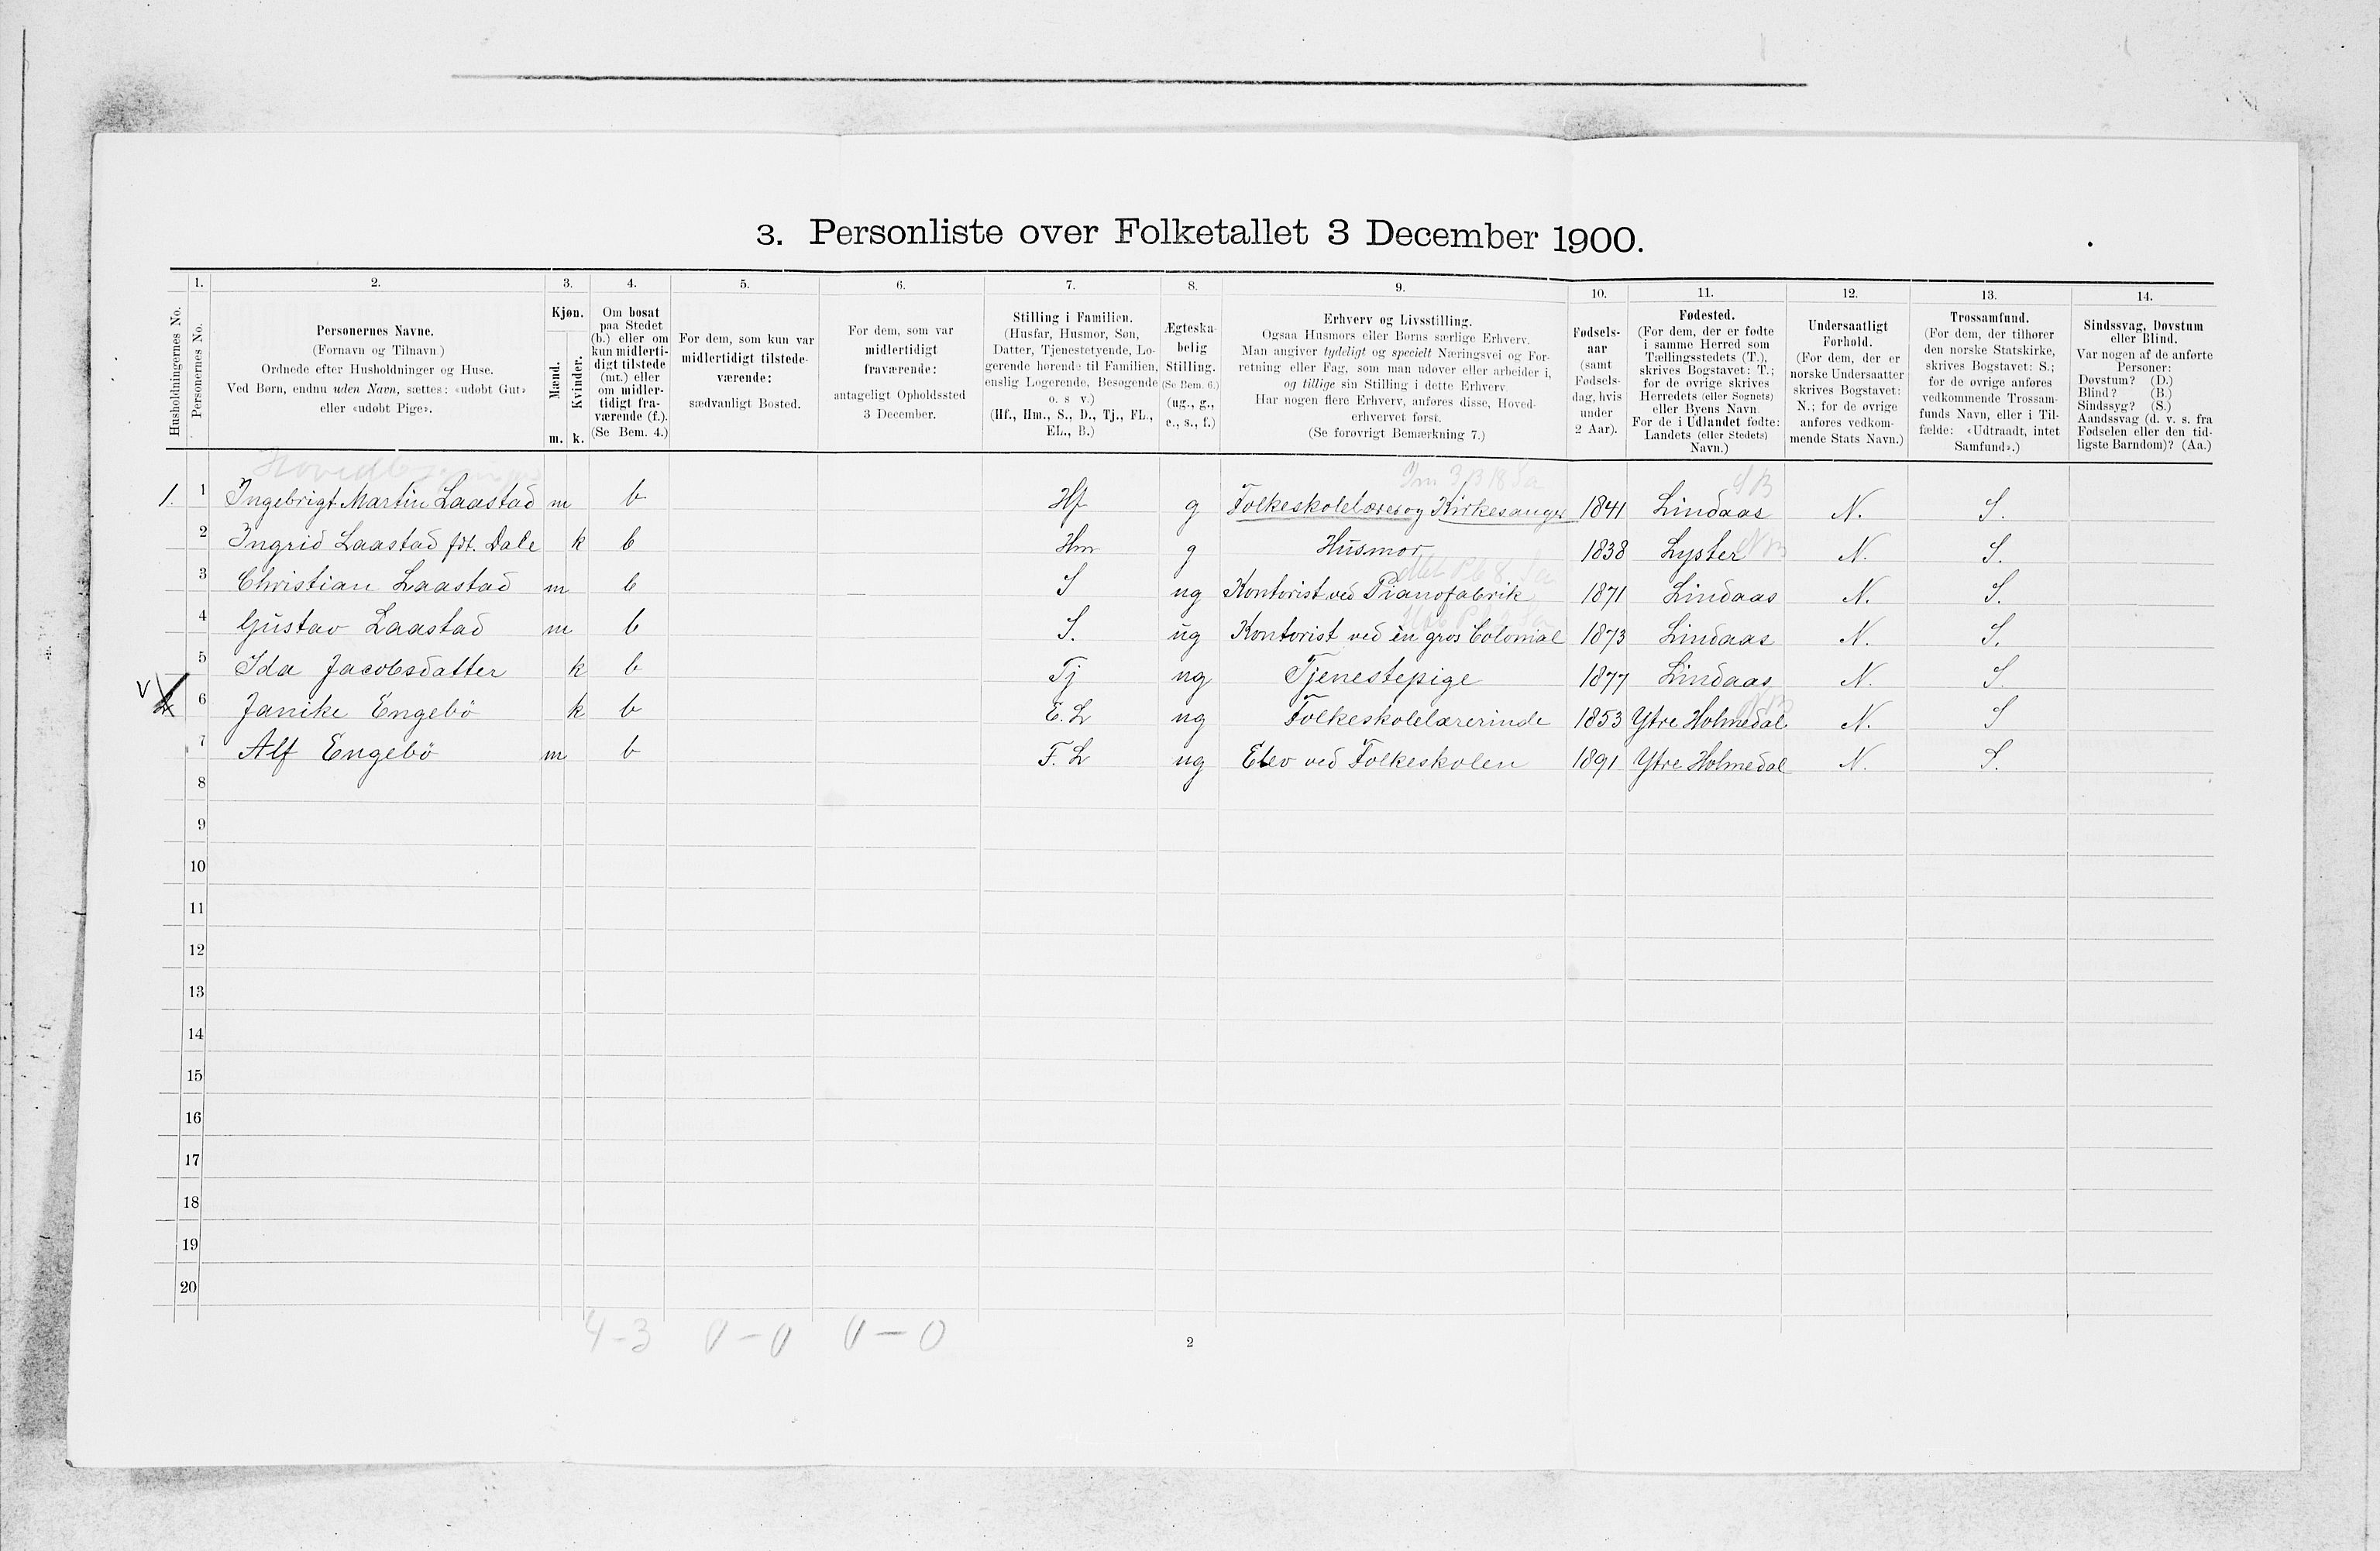 3. Personliste over Folketallet 3 December 1900.
1. 2. 3. 4. 5. 6. 7. 8. 9. 10. 11. 12. 13. 14.
Husholdningernes No.
Personernes No.
Personernes Navne.
(Fornavn og Tilnavn)
Ordnede efter Husholdninger og Huse.
Ved Børn, endnu uden Navn, sættes: «udøbt Gut»
eller «udøbt Pige».
Kjøn.
Mænd.
Kvinder.
m. k.
Om bosat
paa Stedet
(b.) eller om
kun midlerti-
digt tilstede
(mt.) eller
om midler-
tidigt fra-
værende (f.).
(Se Bem. 4.)
For dem, som kun var
midlertidigt tilstede-
værende:
sædvanligt Bosted.
For dem, som var
midlertidigt
fraværende:
antageligt Opholdssted
3 December.
Stilling i Familien.
(Husfar, Husmor, Søn,
Datter, Tjenestetyende, Lo-
gerende hørende til Familien,
enslig Logerende, Besøgende
o. s v.)
(Hf., Hm., S., D., Tj., FL.,
EL., B.)
Ægteska-
belig
Stilling.
(Se Bem. 6.)
(ug., g.,
e., s., f.)
Erhverv og Livsstilling.
Ogsaa Husmors eller Børns særlige Erhverv.
Man angiver tydeligt og specielt Næringsvei og For-
retning eller Fag, som man udøver eller arbeider i,
og tillige sin Stilling i dette Erhverv.
Har nogen flere Erhverv, anføres disse, Hoved-
erhvervet først.
(Se forøvrigt Bemærkning 7.)
Fødsels-
aar
(samt
Fødsels-
dag, hvis
under
2 Aar).
Fødested.
(For dem, der er fødte
i samme Herred som
Tællingsstedets (T.),
skrives Bogstavet: T.;
for de øvrige skrives
Herredets (eller Sognets)
eller Byens Navn.
For de i Udlandet fødte:
Landets (eller Stedets)
Navn.)
Undersaatligt
Forhold.
(For dem, der er
norske Undersaatter
skrives Bogstavet:
N.; for de øvrige
anføres vedkom-
mende Stats Navn.)
Trossamfund.
(For dem, der tilhører
den norske Statskirke,
skrives Bogstavet: S.;
for de øvrige anføres
vedkommende Trossam-
funds Navn, eller i Til-
fælde: «Udtraadt, intet
Samfund».)
Sindssvag, Døvstum
eller Blind.
Var nogen af de anførte
Personer:
Døvstum? (D.)
Blind? (B.)
Sindssyg? (S.)
Aandssvag (d. v. s. fra
Fødselen eller den tid-
ligste Barndom)? (Aa.)
1. 1 Ingebrigt Martin Laastad m b Hf g Folkeskolelærer og Kirkesanger 1841 Lindaas N. S.
2 Ingrid Laastad fdt. Dale k b Hm g Husmor 1838 Lyster N. S.
3 Christian Laastad m b S ug Kontorist ved Pianofabrik 1871 Lindaas N. S.
4 Gustav Laastad m b S. ug Kontorist ved en gros Colonial 1873 Lindaas N. S.
5 Ida Jacobsdatter k b Tj ug Tjenestepige 1877 Lindaas N. S.
6 Janike Engebö k b E. L ug Folkeskolelærerinde 1853 Ytre Holmedal N. S
7 Alf Engebö m b F. L ug Elev ved Folkeskolen 1891 Ytre Holmedal N. S.
8
9
10
11
12
13
14
15
16
17
18
19
20
4-3 0-0 0-0
2